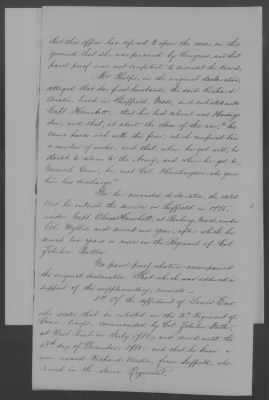 but this office has refused to open the case, on the
ground that she was pensioned by Congress, and that
parol proof was not competent to discredit the Record.
Mrs. Phelps, in the original declaration,
alleged that her first husband, the said Richard
Austin, lived in Sheffield, Mass, and enlisted under
Capt. that his last colonel was Hunting-
don, and that, at about the close of the war, "he
came home sick with the fever, which confined him
a number of weeks; and that, when he got well, he
started to return to the Army, and when he got to
Conn, he met Col. Huntingdon, who gave
him his discharge."
In her amended declaration, she states
that he entered the service in Sheffield in 1775,
under Capt. at Roxbury, Mass, under
Col. and served one year, after which he
served two years or more in the Regiment of Col.
Zebulon Butler.
No parol proof whatever accompanied
the original declaration. That which was adduced in
support of the supplementary, consists —
1st Of the affidavit of Lewis
who states that he enlisted in the 4th Regiment of
Conn. troops, commanded by Col. Zebulon Butler,
at West Point in July 1780, and served until the
13th day of December 1780, and that he knew a
man named Richard Austin, from Sheffield, who
served in the same Regiment.